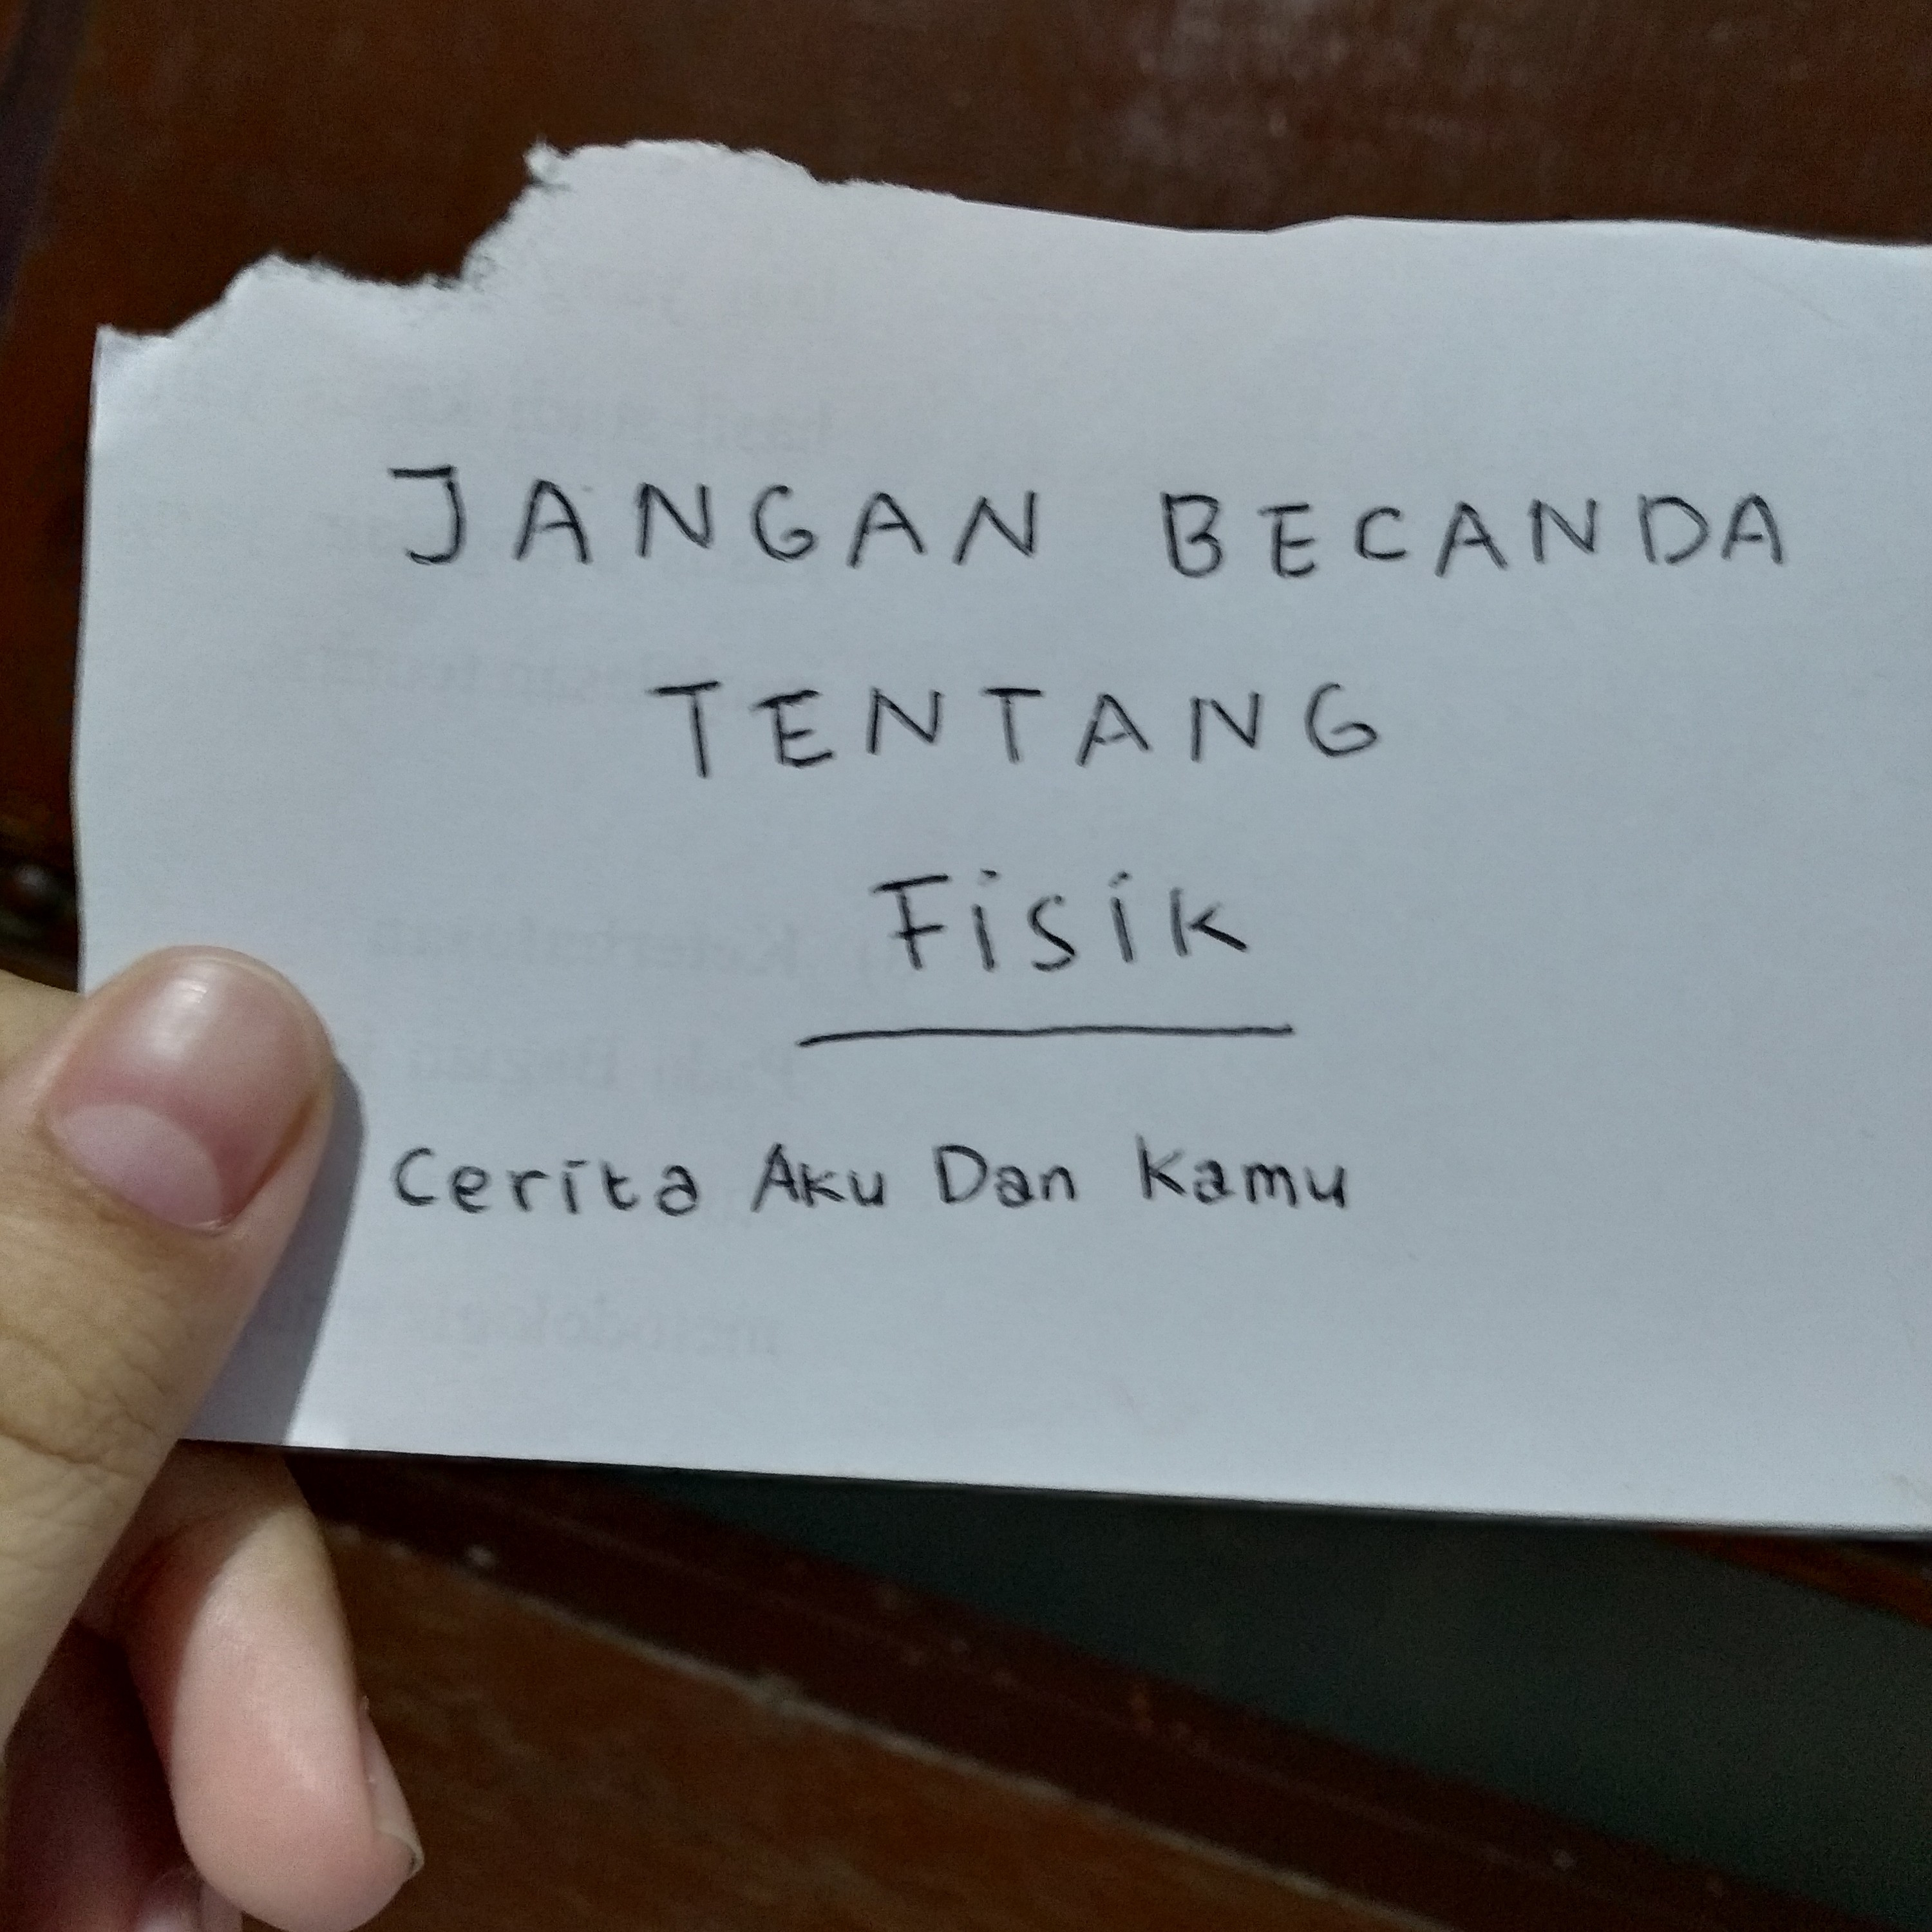 JANGAN BECANDA
TENTANG
Fisik
Cerita Aku Dan Kamu